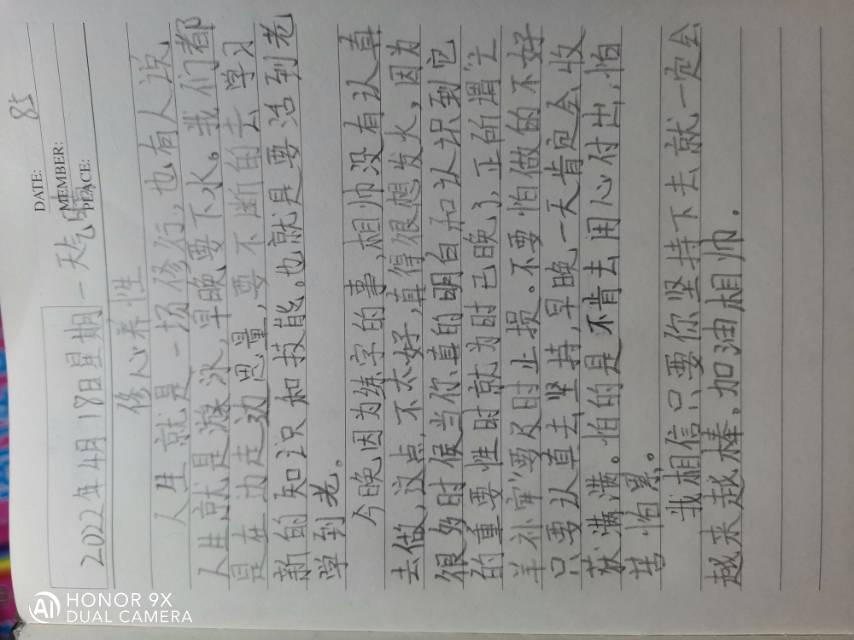 DATE: 85
MEMBER:
PEACE:
2022年4月18日星期一天气晴
修心养性
人生就是一场修行,也有人说
人生就是游泳,早晚要下水。我们都
是在边走边思量,要不断的去学习
新的知识和技能,也就是要活到老
学到老。
今晚因为练字的事,相帅没有认真
去做,这点,不太好,真得很想发火,因为
很多时候当你真的明白和认识到它
的重要性时就为时已晚了,正所谓"亡
羊补牢"要及时止损。不要怕做的不好
只要认真去坚持,早晚一天肯定会收
获满满。怕的是不肯去用心付出,怕
苦怕累。
我相信只要你坚持下去就一定会
越来越棒。加油相帅.
HONOR 9X
DUAL CAMERA